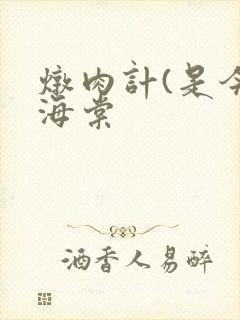 燉肉計(是今
海棠
酒香人易醉